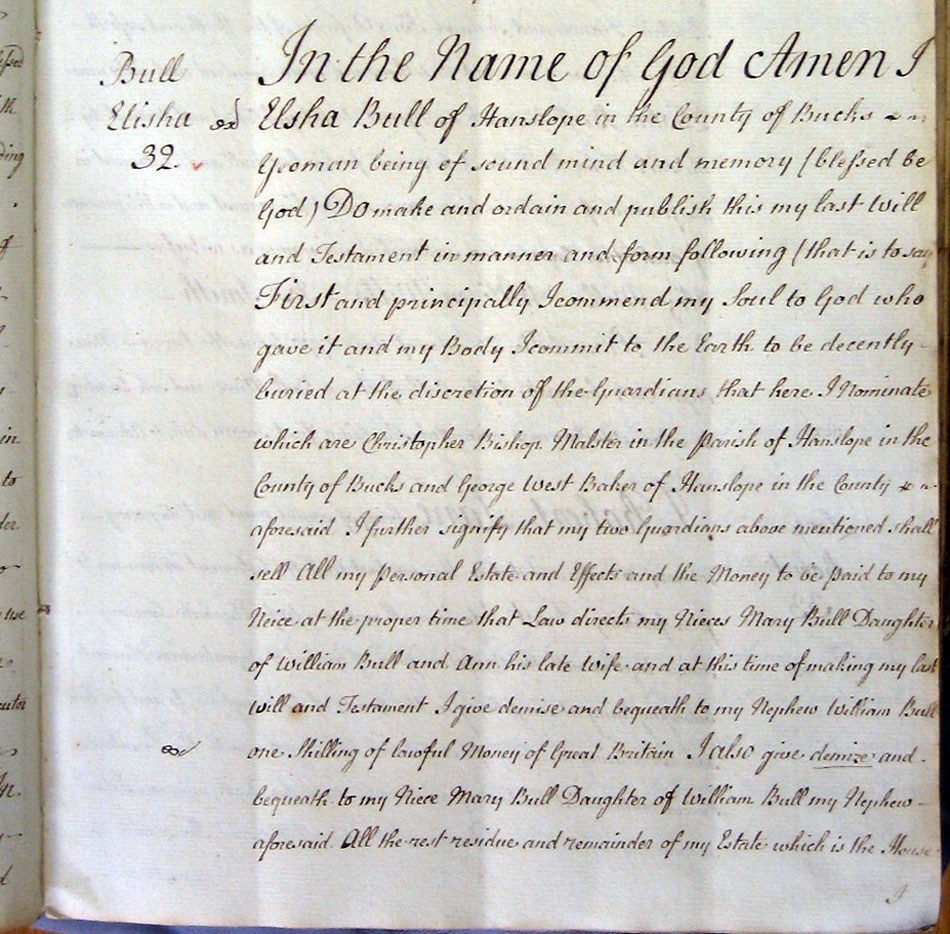 Bull
Elisha ex
32
In the Name of God Amen I
Elsha Bull of Hanslope in the County of Bucks
Yeoman being of sound mind and memory (blessed be
God) Do make and ordain and publish this my last Will
and Testament in manner and form following (that is to say
First and principally I commend my Soul to God who
gave it and my Body I commit to the Earth to be decently
buried at the discretion of the Guardians that here I Nominate
which are Christopher Bishop Malster in the Parish of Hanslope in the
County of Bucks and George West Baker of Hanslope in the County
aforesaid I further signify that my two Guardians above mentioned shall
sell All my Personal Estate and Effects and the Money to be paid to my
Neice at the proper time that Law directs my Nieces Mary Bull Daughter
of William Bull and Ann his late Wife and at this time of making my last
will and Testament I give demise and bequeath to my Nephew William Bull
one Shilling of lawful Money of Great Britain I also give demize and
bequeath to my Niece Mary Bull Daughter of William Bull my Nephew
aforesaid All the rest residue and remainder of my Estate which is the House